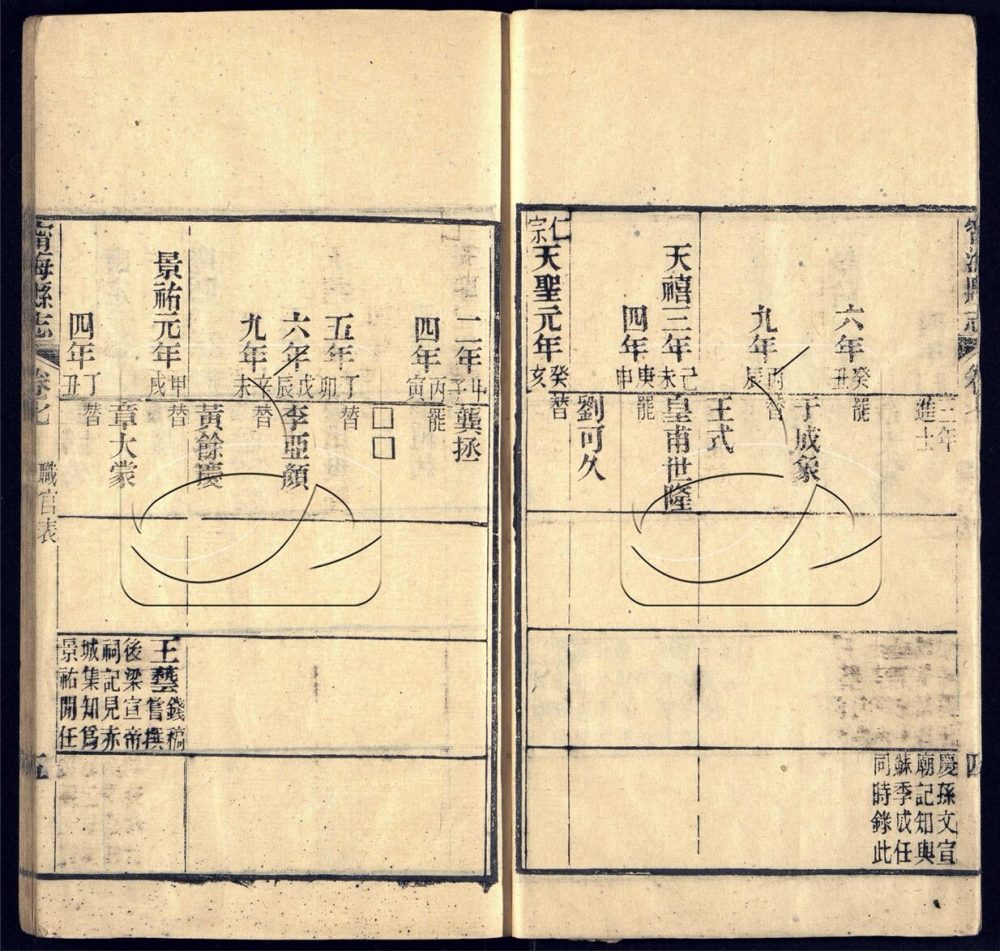 三年
進士
六年癸丑
罷
于成象
九年丙辰
替
王式
天禧三年己未
皇甫世隆
四年庚申
罷
劉可久
仁宗天聖元年癸亥
替
慶孫文宣
廟記知與
蘇季成任
同時錄此
四
二年甲子
龔拯
四年丙寅
罷
□□
五年丁卯
替
六年戊辰
李亞顏
九年辛未
替
黃餘慶
景祐元年甲戌
替
章大蒙
四年丁丑
替
王藝錢稿
嘗撰
後梁宣帝
祠記見赤
城集知爲
景祐閒任
寧海縣志
卷七
職官表
五